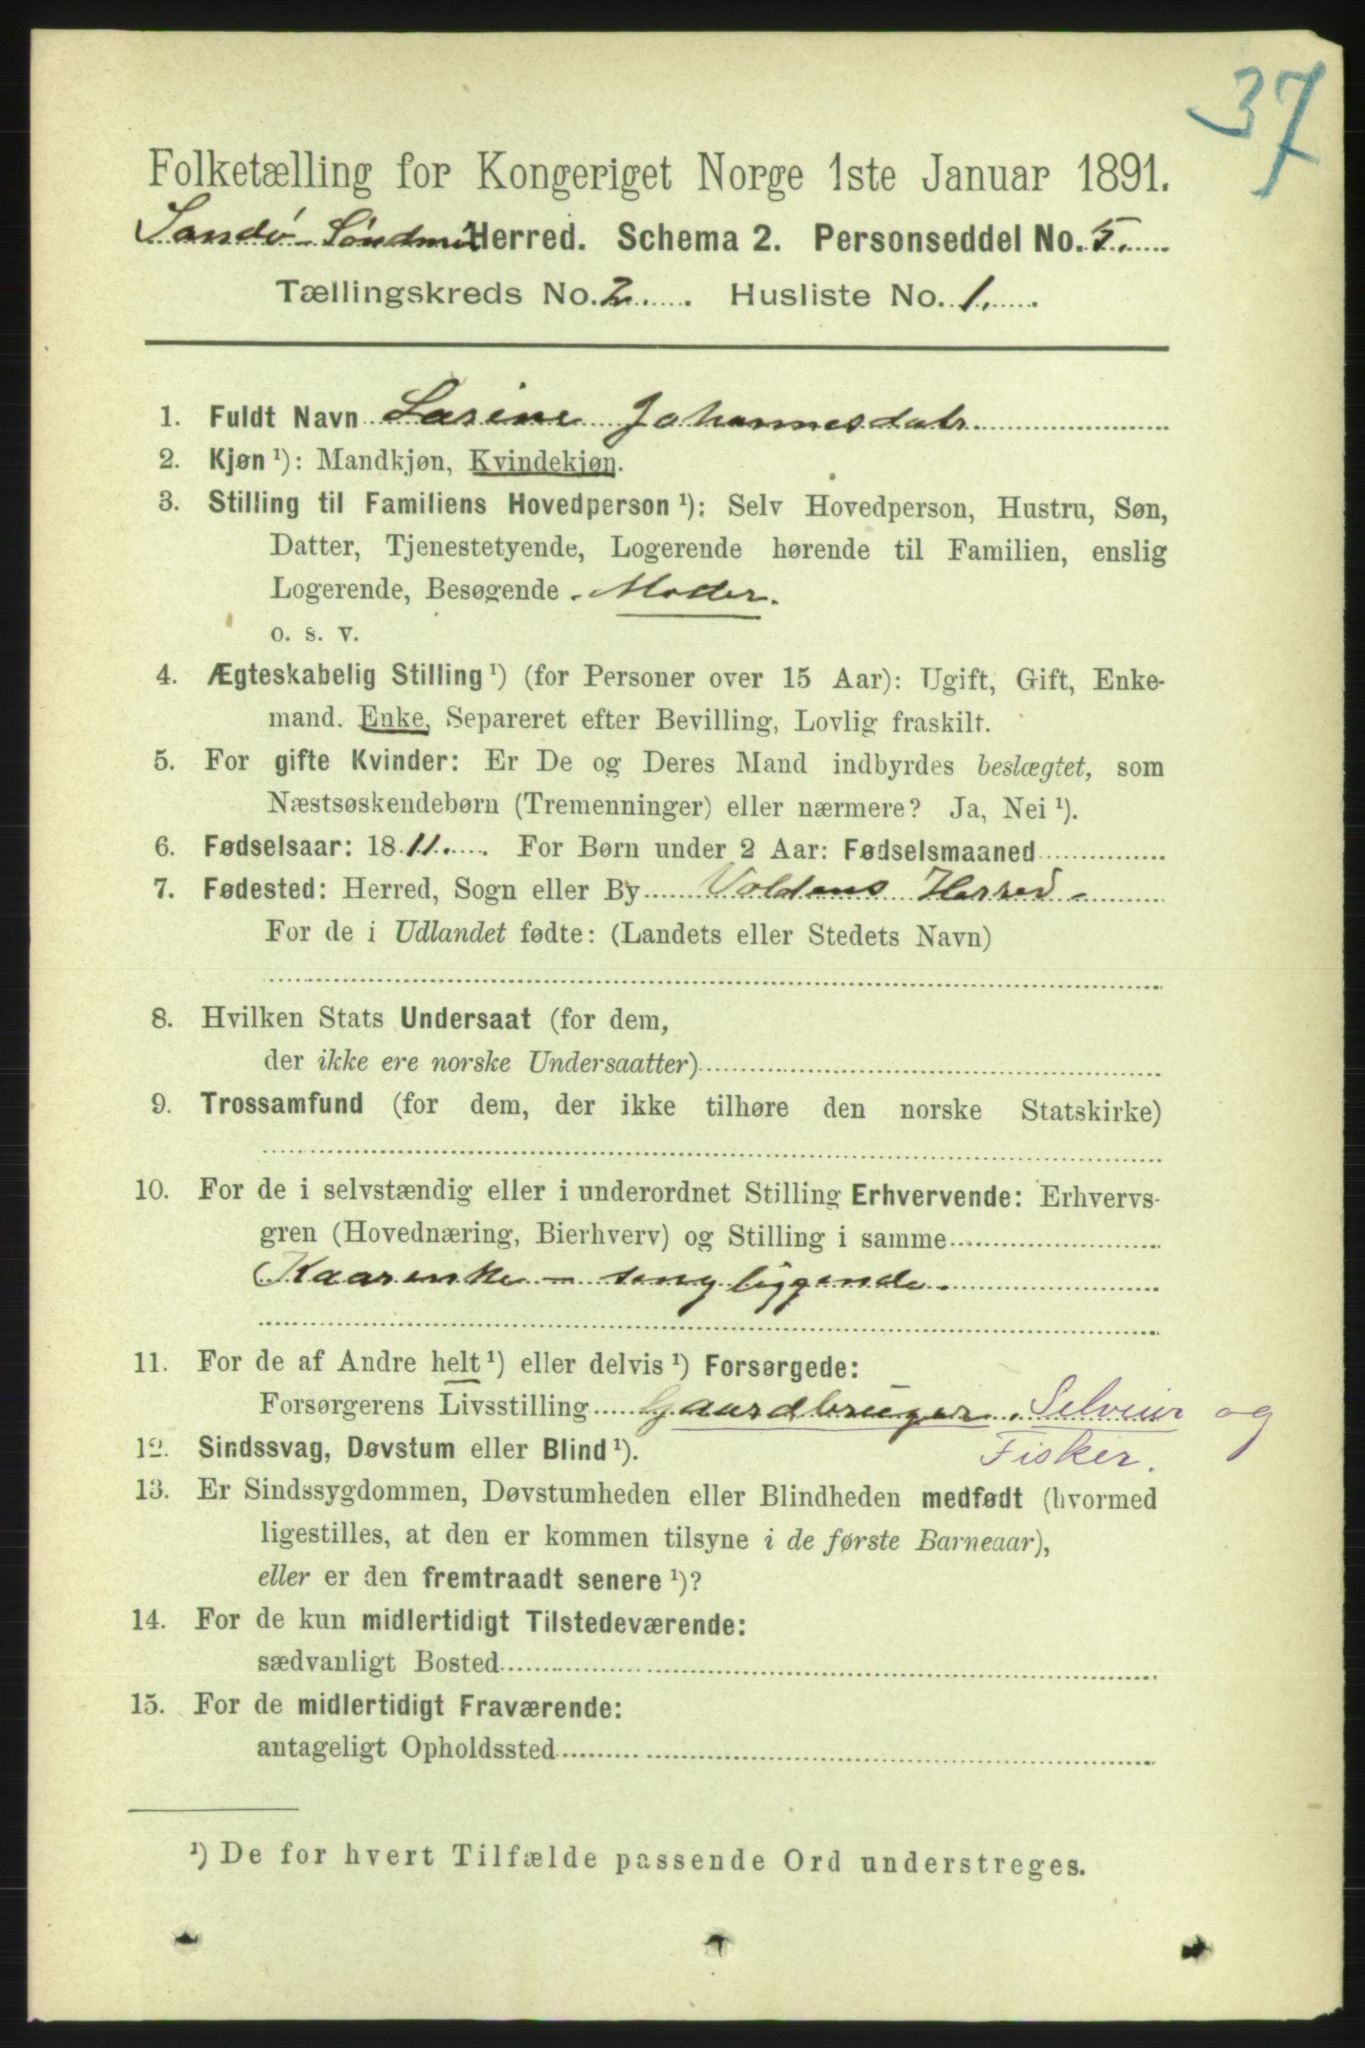 37
Folketælling for Kongeriget Norge 1ste Januar 1891.
Sandø Søndmør Herred. Schema 2. Personseddel No. 5.
Tællingskreds No. 2. Husliste No. 1.
1. Fuldt Navn Lasine Johannesdatr.
2. Kjøn ¹): Mandkjøn, Kvindekjøn.
3. Stilling til Familiens Hovedperson ¹): Selv Hovedperson, Hustru, Søn,
Datter, Tjenestetyende, Logerende hørende til Familien, enslig
Logerende, Besøgende. Moder.
o. s. v.
4. Ægteskabelig Stilling ¹) (for Personer over 15 Aar): Ugift, Gift, Enke-
mand. Enke, Separeret efter Bevilling, Lovlig fraskilt.
5. For gifte Kvinder: Er De og Deres Mand indbyrdes beslægtet, som
Næstsøskendebørn (Tremenninger) eller nærmere? Ja, Nei ¹).
6. Fødselsaar: 1811. For Børn under 2 Aar: Fødselsmaaned
7. Fødested: Herred, Sogn eller By Voldens Herred -
For de i Udlandet fødte: (Landets eller Stedets Navn)
8. Hvilken Stats Undersaat (for dem,
der ikke ere norske Undersaatter)
9. Trossamfund (for dem, der ikke tilhøre den norske Statskirke)
10. For de i selvstændig eller i underordnet Stilling Erhvervende: Erhvervs-
gren (Hovednæring, Bierhverv) og Stilling i samme
Kaarenke - sengliggende.
11. For de af Andre helt ¹) eller delvis ¹) Forsørgede:
Forsørgerens Livsstilling Gaardbruger. Selveier og
12. Sindssvag, Døvstum eller Blind ¹). Fisker.
13. Er Sindssygdommen, Døvstumheden eller Blindheden medfødt (hvormed
ligestilles, at den er kommen tilsyne i de første Barneaar),
eller er den fremtraadt senere ¹)?
14. For de kun midlertidigt Tilstedeværende:
sædvanligt Bosted
15. For de midlertidigt Fraværende:
antageligt Opholdssted
¹) De for hvert Tilfælde passende Ord understreges.